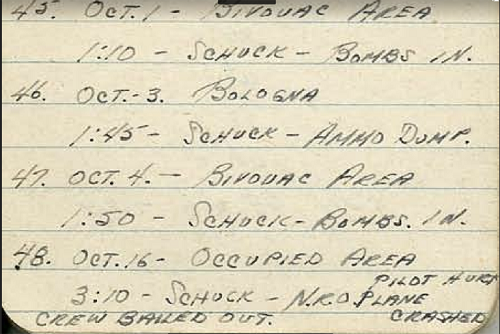 45. OCT. 1 - BIVOUAC AREA.
1:10 - SCHUCK - BOMBS IN.
46. OCT.-3. BOLOGNA
1:45 - SCHUCK - AMMO DUMP.
47. OCT. 4. - BIVOUAC AREA
1:50 - SCHUCK - BOMBS. IN.
48. OCT. 16 - OCCUPIED AREA
PILOT HURT
3:10 - SCHUCK - N.R.O. PLANE
CREW BAILED OUT. CRASHED